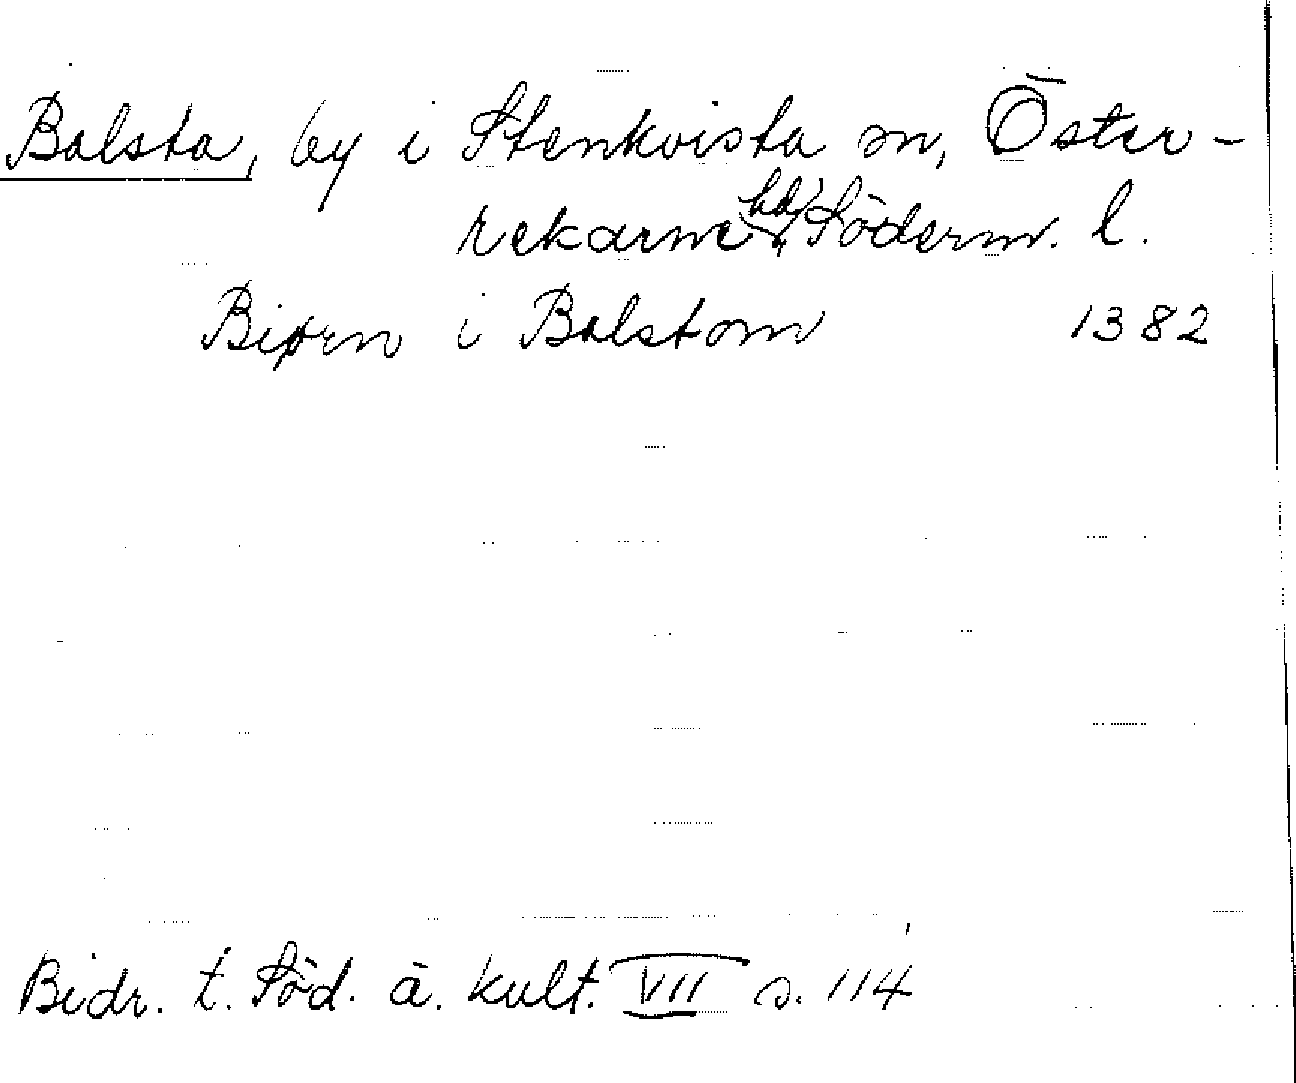 Balsta, by i Stenkvista sn, Öster-
rekarne hd, Söderm. l.
Biørn i Balstom 1382
Bidr. t. Söd. ä. kult. VII s. 114